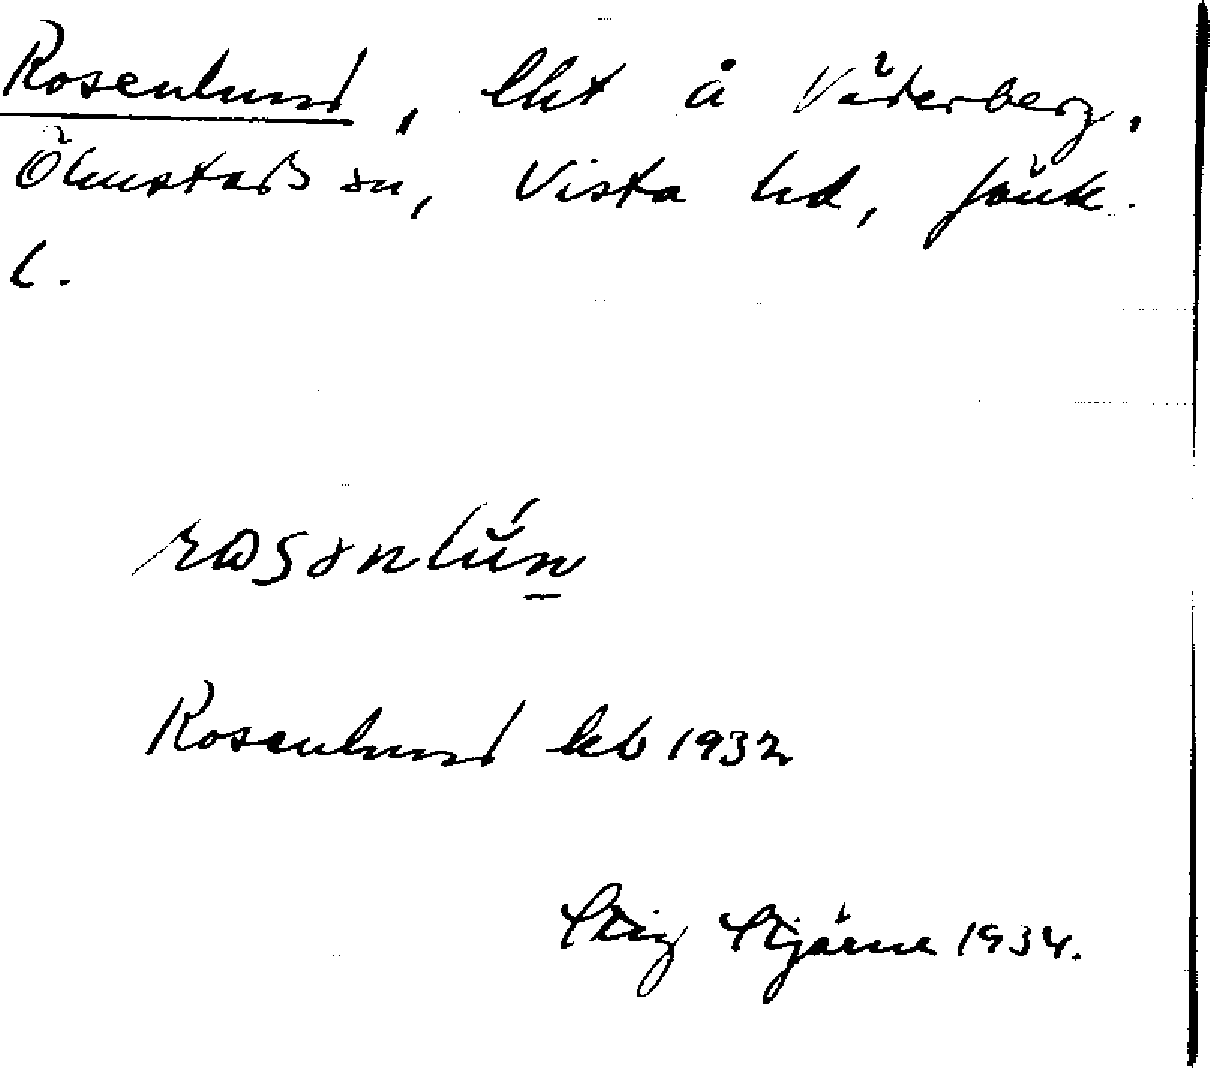 Rosenlund, lht å Väderberg.
Ölmstads sn, Vista hd, Jönk.
l.
Rosenlund kb 1932
Stig Stjärne 1934.